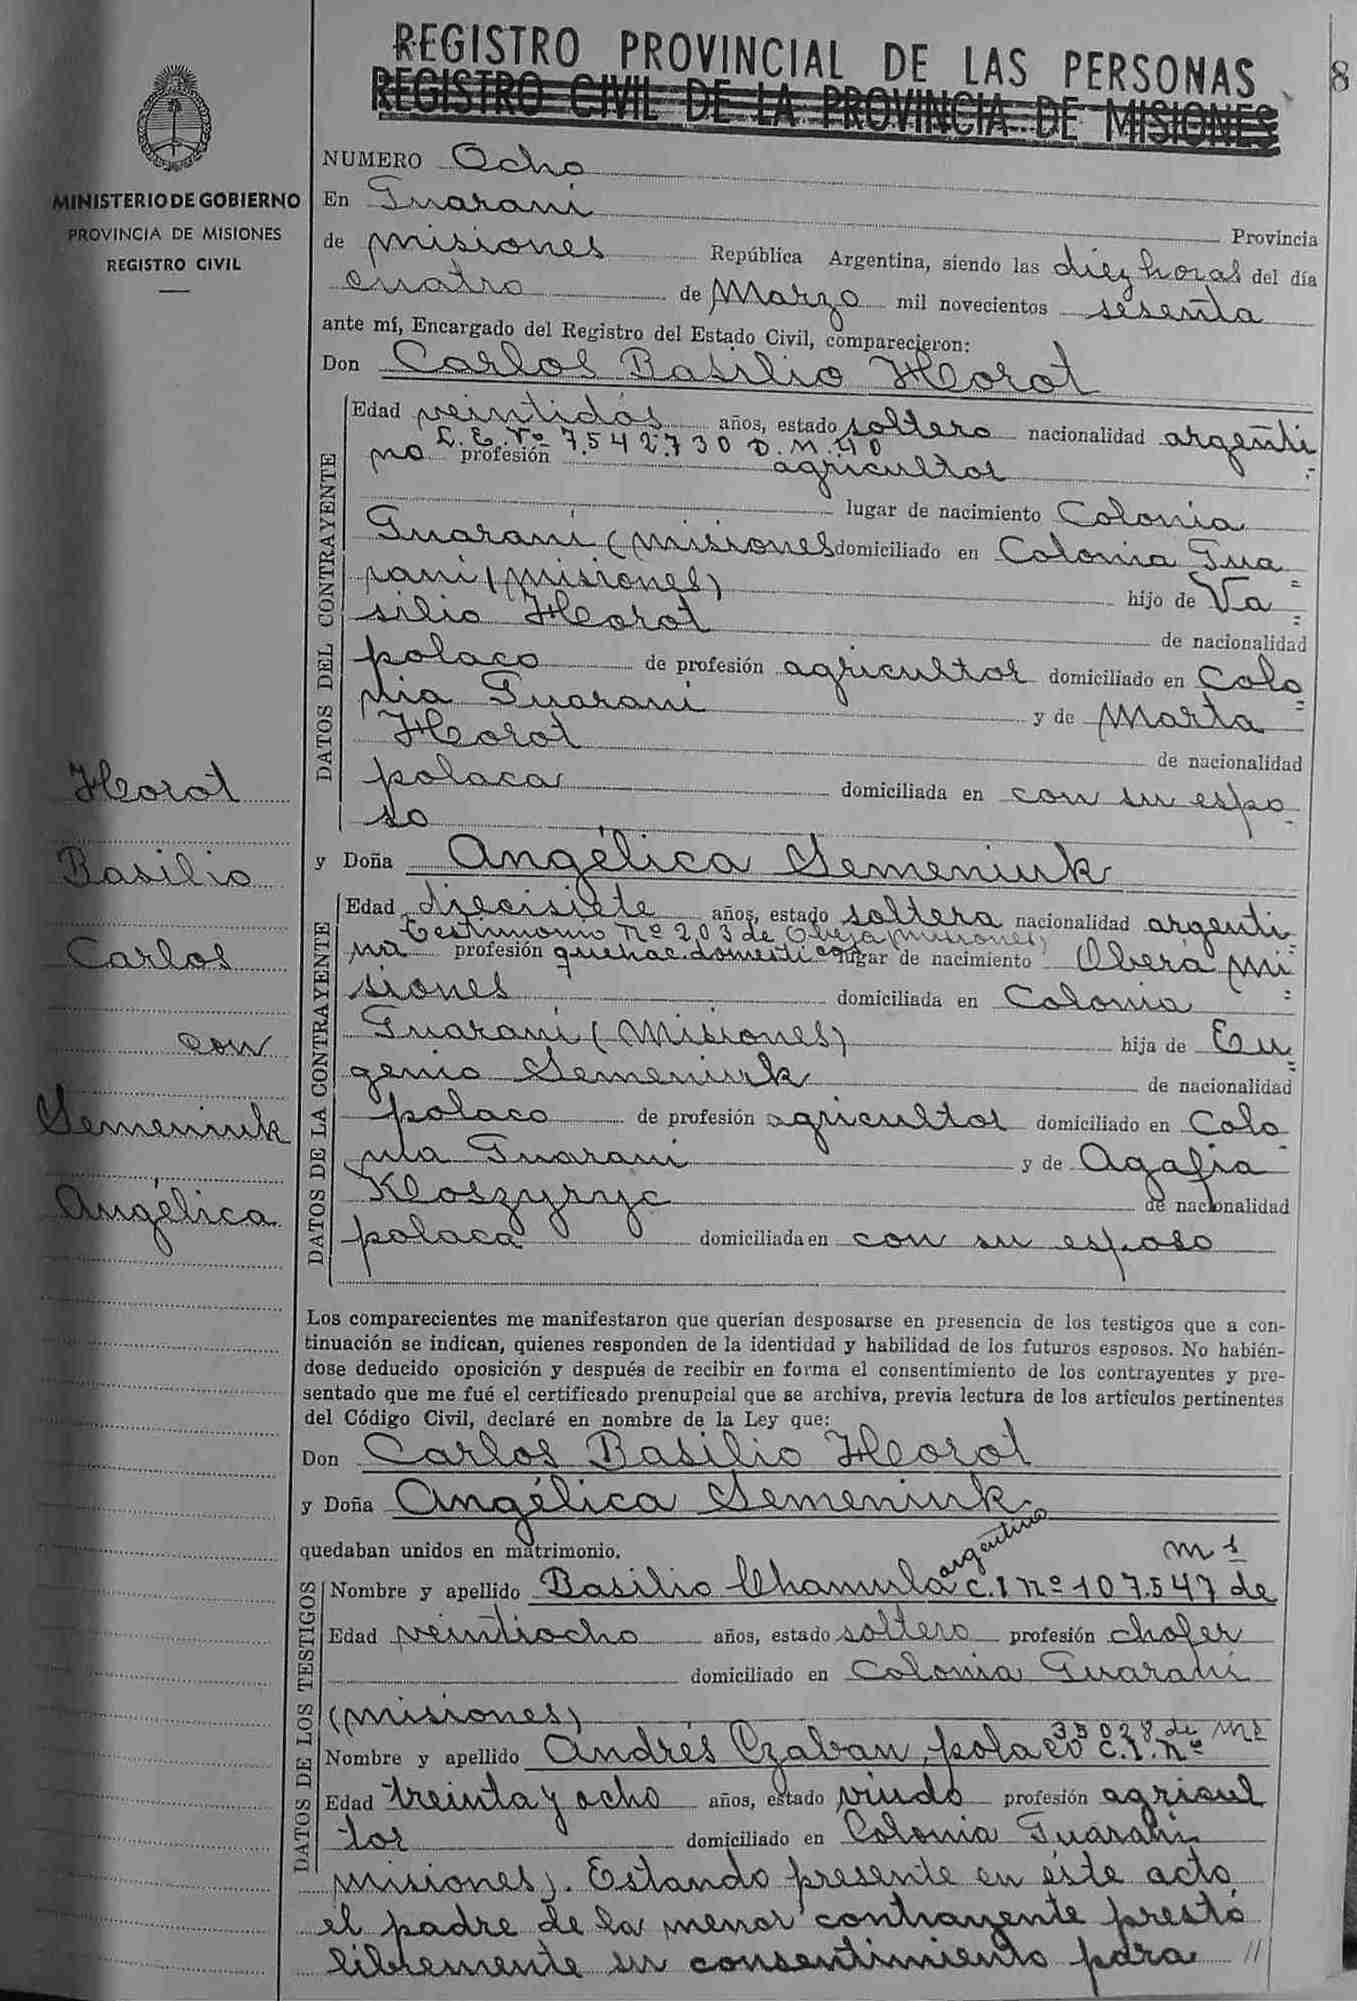 REGISTRO PROVINCIAL DE LAS PERSONAS
8
REGISTRO CIVIL DE LA PROVINCIA DE MISIONES
MINISTERIO DE GOBIERNO
PROVINCIA DE MISIONES
REGISTRO CIVIL
NUMERO Ocho
En Guaraní Provincia
de misiones República Argentina, siendo las diez horas del día
cuatro de Marzo mil novecientos sesenta
ante mí, Encargado del Registro del Estado Civil, comparecieron:
Don Carlos Basilio Horot
DATOS DEL CONTRAYENTE
Edad veintidós años, estado soltero nacionalidad argenti
L. E. Nº 7.542.730 D. M. 40
no profesión agricultor
lugar de nacimiento Colonia
Guaraní (misiones domiciliado en Colonia Gua
raní (misiones) hijo de Va
silio Horot de nacionalidad
polaco de profesión agricultor domiciliado en Colo
nia Guaraní y de Marta
Horot de nacionalidad
polaca domiciliada en con su espo
so
Horot
Basilio
Carlos
con
Semeniuk
Angélica
y Doña Angélica Semeniuk
DATOS DE LA CONTRAYENTE
Edad diecisiete años, estado soltera nacionalidad argenti
Testimonio Nº 203 de misiones)
na profesión quehac. domesticos lugar de nacimiento Oberá mi
siones domiciliada en Colonia
Guaraní (Misiones) hija de Eu
genio Semeniuk de nacionalidad
polaco de profesión agricultor domiciliado en Colo
nia Guaraní y de Agafia
Kloszyryc de nacionalidad
polaca domiciliada en con su esposo
Los comparecientes me manifestaron que querían desposarse en presencia de los testigos que a con-
tinuación se indican, quienes responden de la identidad y habilidad de los futuros esposos. No habién-
dose deducido oposición y después de recibir en forma el consentimiento de los contrayentes y pre-
sentado que me fué el certificado prenupcial que se archiva, previa lectura de los artículos pertinentes
del Código Civil, declaré en nombre de la Ley que:
Don Carlos Basilio Horot
y Doña Angélica Semeniuk
quedaban unidos en matrimonio.
DATOS DE LOS TESTIGOS
argentino Ms
Nombre y apellido Basilio Chamula C.I nº 107.547 de
Edad veintiocho años, estado soltero profesión chofer
domiciliado en Colonia Guaraní
(misiones)
35028 de Ms
Nombre y apellido Andrés Czaban, polaco C.I. nº
Edad treinta y ocho años, estado viudo profesión agricul
tor domiciliado en Colonia Guaraní
misiones). Estando presente en éste acto
el padre de la menor contrayente prestó
libremente su consentimiento para //